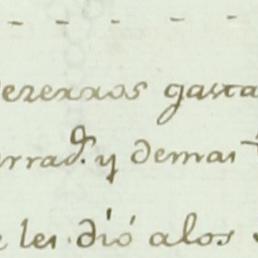 erexxos gasta
rrad.ˢ y demas
les dió alos